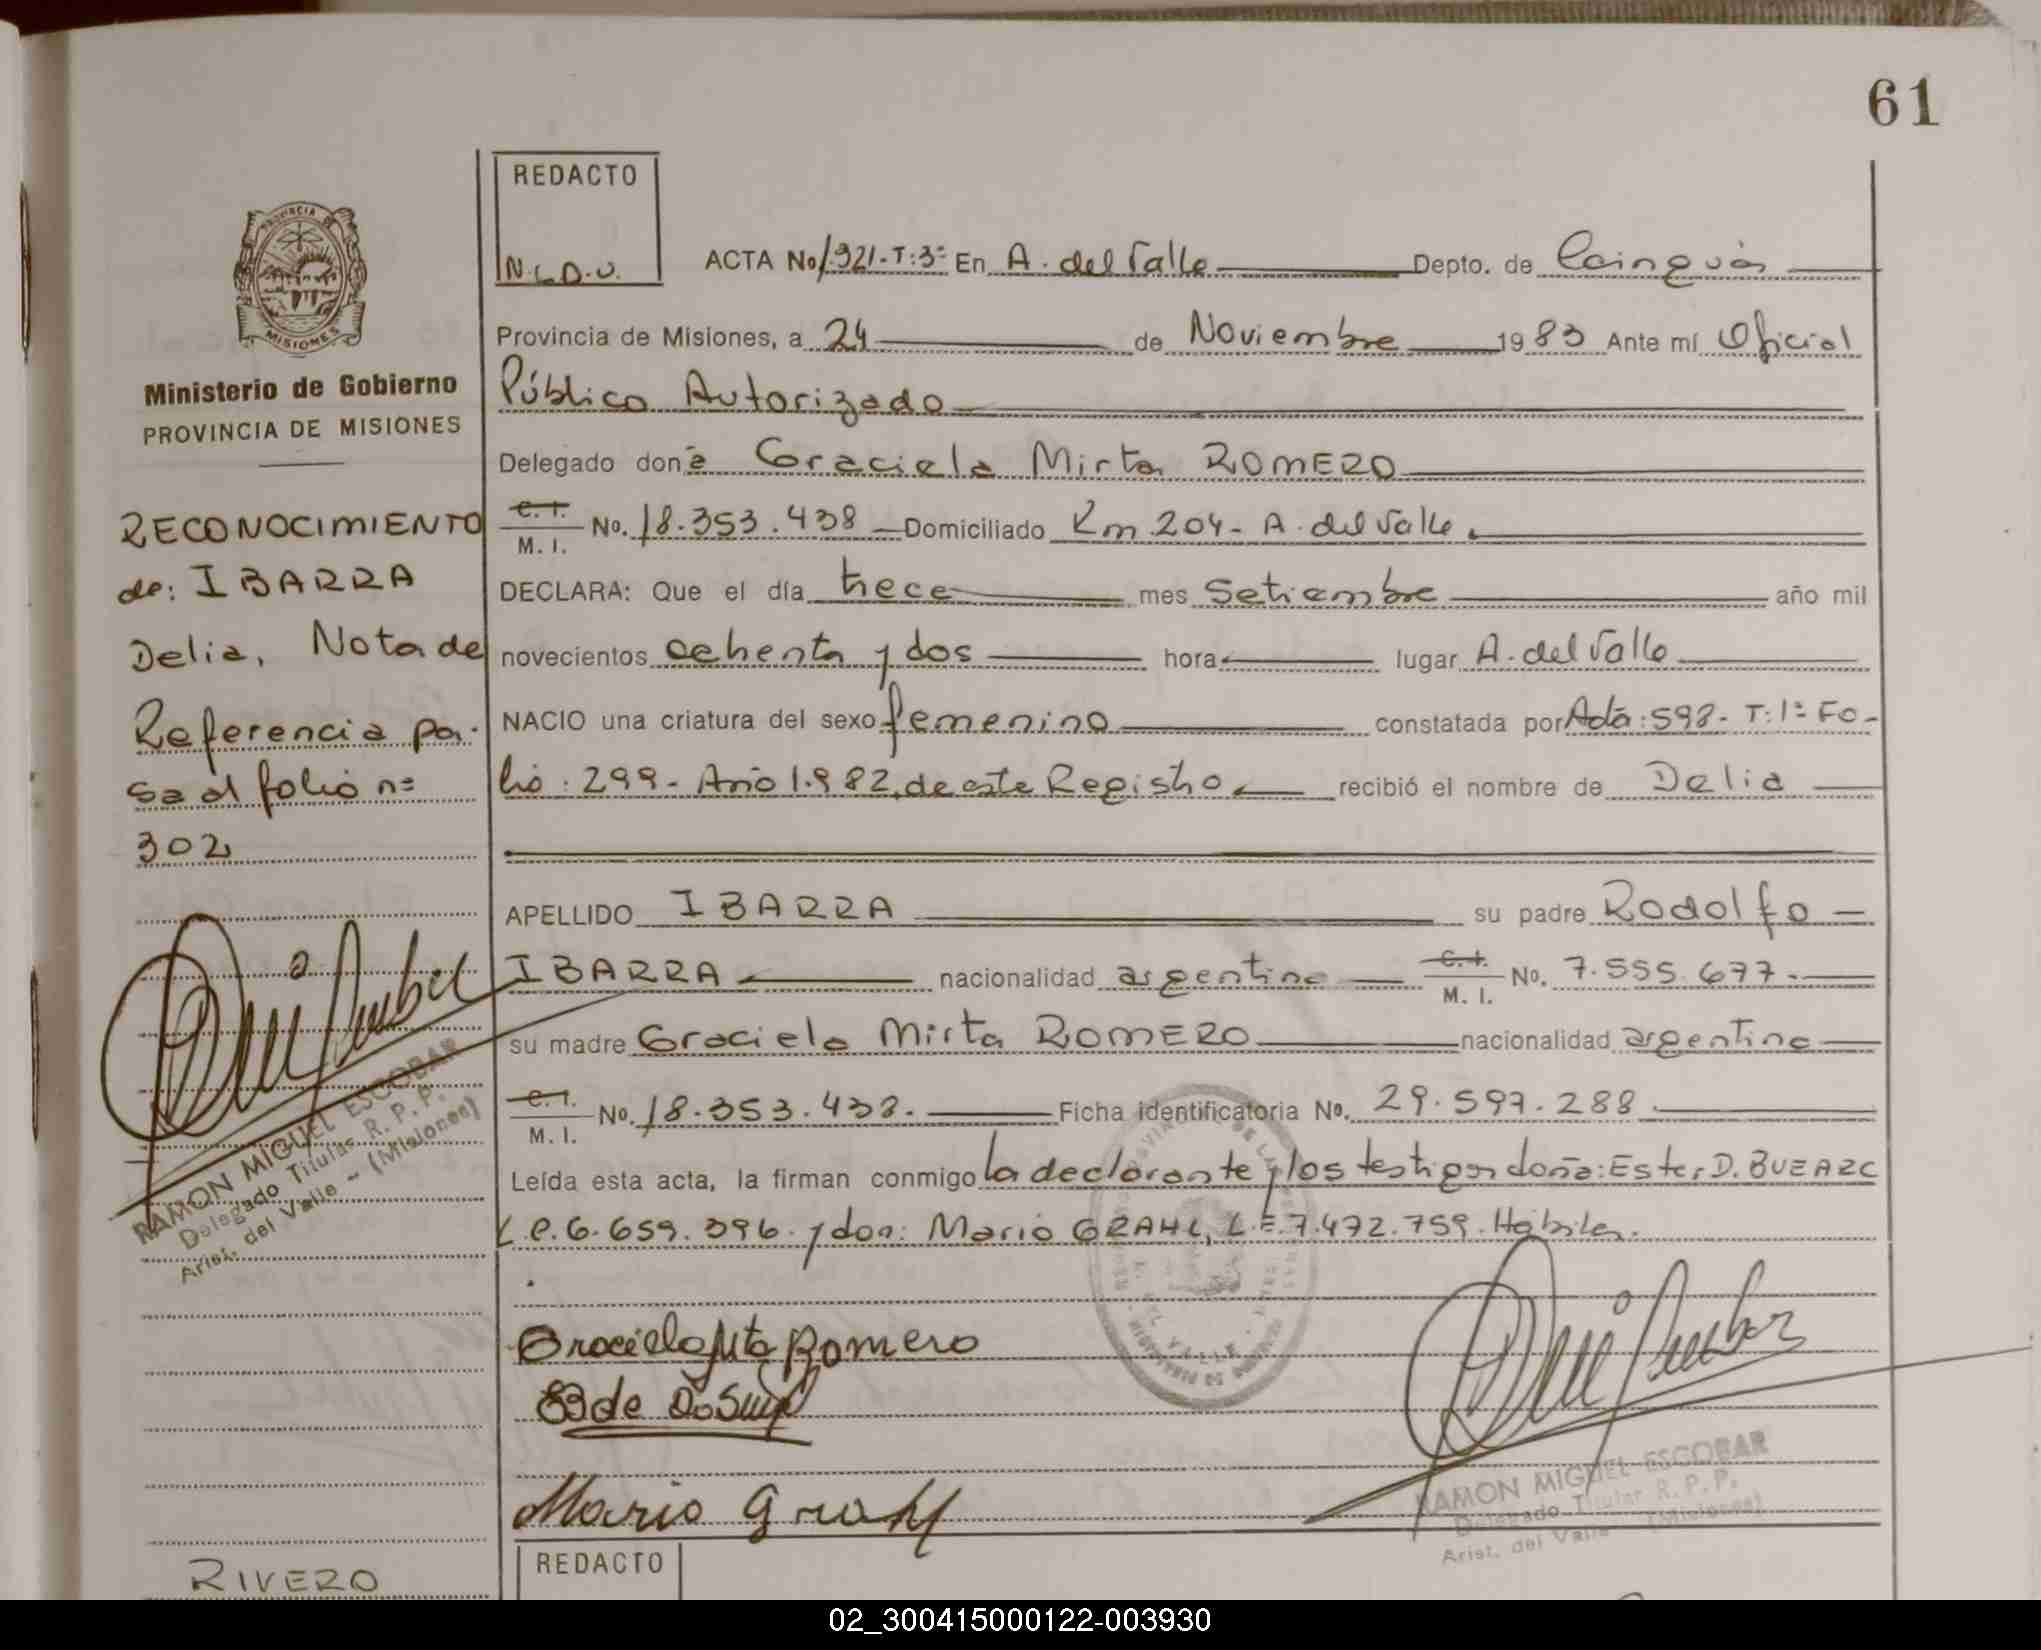 61
REDACTO
N.L.D.U.
ACTA No 1.921.T:3º En A. del Valle Depto. de Cainguás
Provincia de Misiones, a 24 de Noviembre 1983 Ante mí Oficial
Público Autorizado
Delegado doña Graciela Mirta ROMERO
C. I. M. I. No. 18.353.438 Domiciliado Km 204 - A. del Valle.
DECLARA: Que el día trece mes Setiembre año mil
novecientos ochenta y dos hora lugar A. del Valle
NACIO una criatura del sexo femenino constatada por Acta: 598- T:1º Fo-
lio: 299- Año 1.982, de este Registro recibió el nombre de Delia
APELLIDO IBARRA su padre Rodolfo
IBARRA nacionalidad argentina C. I. M. I. No. 7.555.677.
su madre Graciela Mirta ROMERO nacionalidad argentina
C. I. M. I. No. 18.353.438. Ficha identificatoria No. 29.597.288
Leída esta acta, la firman conmigo la declarante y los testigos doña: Ester D.
L.C. 6.659.396. y don: Mario GRAHL, L.E. 7.472.759. Hábiles.
Graciela Mirta Romero
Mario Grahl
RAMON MIGUEL ESCOBAR
Delegado Titular R. P. P.
Arist. del Valle - (Misiones)
REDACTO
PROVINCIA DE
MISIONES
Ministerio de Gobierno
PROVINCIA DE MISIONES
RECONOCIMIENTO
de: IBARRA
Delia, Nota de
Referencia pa-
sa al folio nº
302
RAMON MIGUEL ESCOBAR
Delegado Titular R. P. P.
Arist. del Valle - (Misiones)
RIVERO
02_300415000122-003930